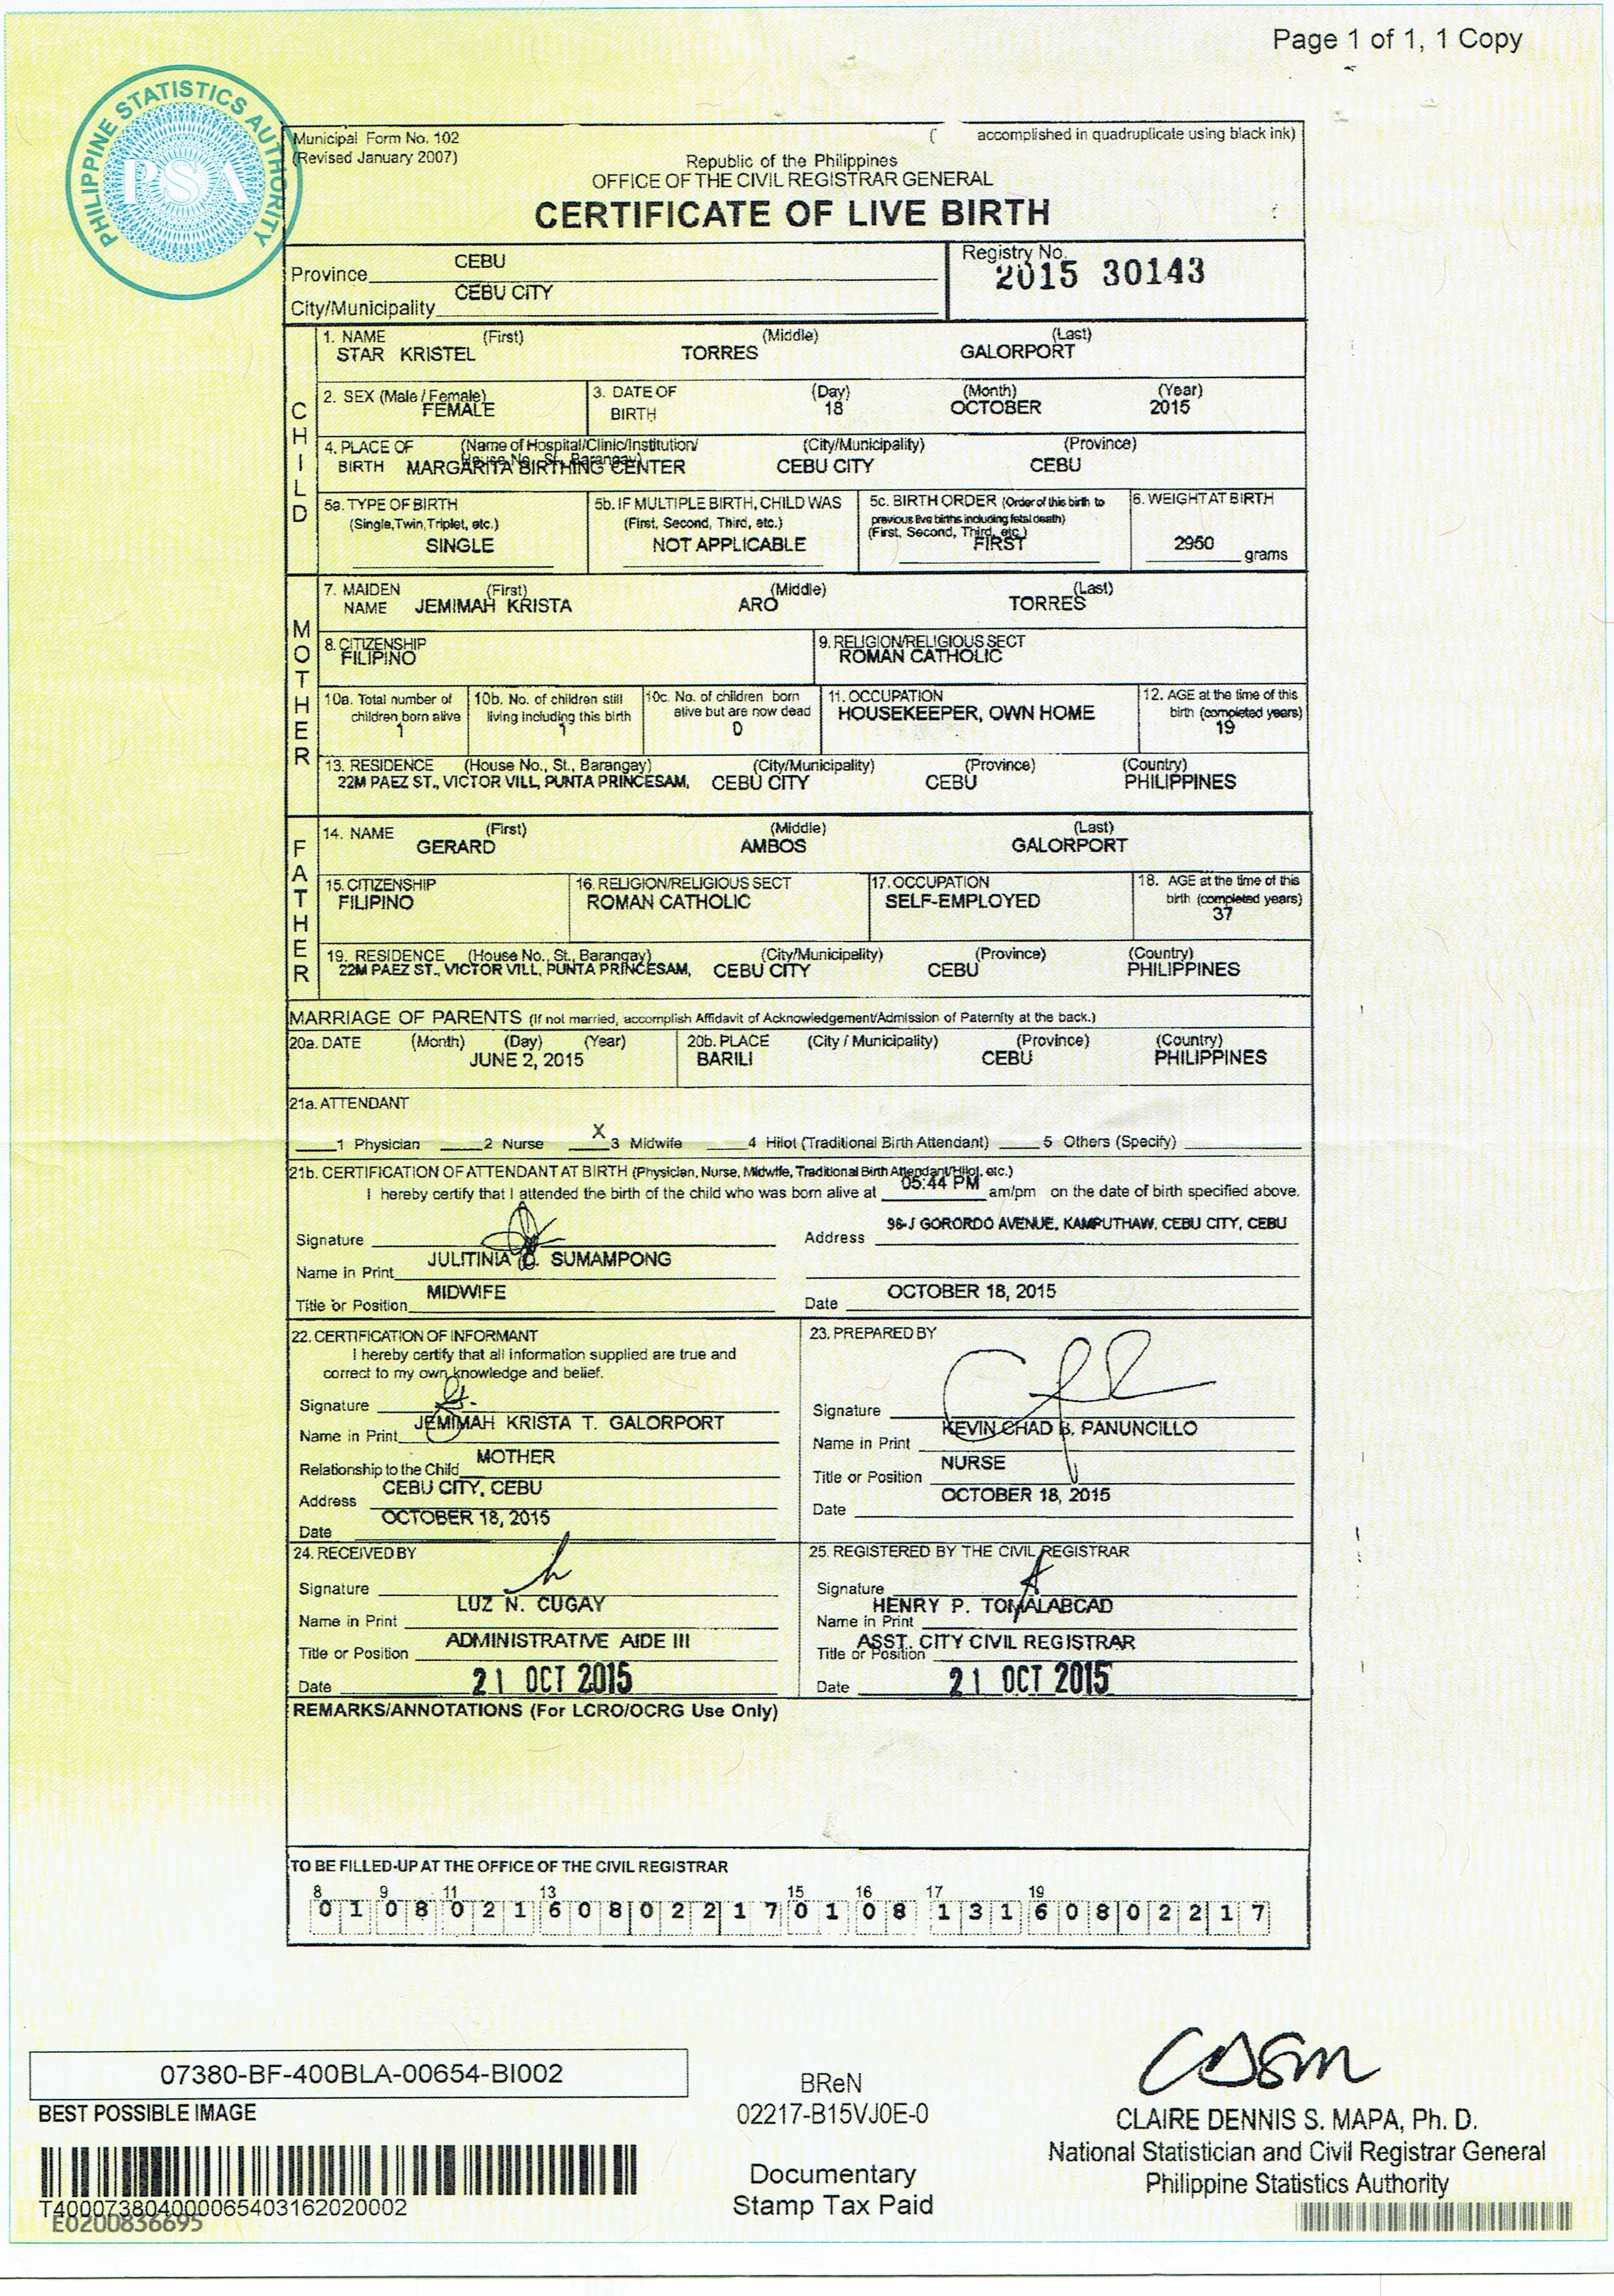 Page 1 of 1, 1 Copy
PHILIPPINE STATISTICS AUTHORITY
PSA
Municipal Form No. 102
(Revised January 2007)
( accomplished in quadruplicate using black ink)
Republic of the Philippines
OFFICE OF THE CIVIL REGISTRAR GENERAL
CERTIFICATE OF LIVE BIRTH
Province CEBU
City/Municipality CEBU CITY
Registry No.
2015 30143
CHILD
1. NAME (First) (Middle) (Last)
STAR KRISTEL TORRES GALORPORT
2. SEX (Male / Female)
FEMALE
3. DATE OF BIRTH (Day) (Month) (Year)
18 OCTOBER 2015
4. PLACE OF BIRTH (Name of Hospital/Clinic/Institution/ House No., St., Barangay) (City/Municipality) (Province)
MARGARITA BIRTHING CENTER CEBU CITY CEBU
5a. TYPE OF BIRTH
(Single, Twin, Triplet, etc.)
SINGLE
5b. IF MULTIPLE BIRTH, CHILD WAS
(First, Second, Third, etc.)
NOT APPLICABLE
5c. BIRTH ORDER (Order of this birth to
previous live births including fetal death)
(First, Second, Third, etc.)
FIRST
6. WEIGHT AT BIRTH
2950 grams
MOTHER
7. MAIDEN NAME (First) (Middle) (Last)
JEMIMAH KRISTA ARO TORRES
8. CITIZENSHIP
FILIPINO
9. RELIGION/RELIGIOUS SECT
ROMAN CATHOLIC
10a. Total number of
children born alive
1
10b. No. of children still
living including this birth
1
10c. No. of children born
alive but are now dead
0
11. OCCUPATION
HOUSEKEEPER, OWN HOME
12. AGE at the time of this
birth (completed years)
19
13. RESIDENCE (House No., St., Barangay) (City/Municipality) (Province) (Country)
22M PAEZ ST., VICTOR VILL, PUNTA PRINCESAM, CEBU CITY CEBU PHILIPPINES
FATHER
14. NAME (First) (Middle) (Last)
GERARD AMBOS GALORPORT
15. CITIZENSHIP
FILIPINO
16. RELIGION/RELIGIOUS SECT
ROMAN CATHOLIC
17. OCCUPATION
SELF-EMPLOYED
18. AGE at the time of this
birth (completed years)
37
19. RESIDENCE (House No., St., Barangay) (City/Municipality) (Province) (Country)
22M PAEZ ST., VICTOR VILL, PUNTA PRINCESAM, CEBU CITY CEBU PHILIPPINES
MARRIAGE OF PARENTS (If not married, accomplish Affidavit of Acknowledgement/Admission of Paternity at the back.)
20a. DATE (Month) (Day) (Year)
JUNE 2, 2015
20b. PLACE (City / Municipality) (Province) (Country)
BARILI CEBU PHILIPPINES
21a. ATTENDANT
1 Physician 2 Nurse X 3 Midwife 4 Hilot (Traditional Birth Attendant) 5 Others (Specify)
21b. CERTIFICATION OF ATTENDANT AT BIRTH (Physician, Nurse, Midwife, Traditional Birth Attendant/Hilot, etc.)
I hereby certify that I attended the birth of the child who was born alive at 05:44 PM am/pm on the date of birth specified above.
Signature
Address 96-J GORORDO AVENUE, KAMPUTHAW, CEBU CITY, CEBU
Name in Print JULITINIA C. SUMAMPONG
Title or Position MIDWIFE
Date OCTOBER 18, 2015
22. CERTIFICATION OF INFORMANT
I hereby certify that all information supplied are true and
correct to my own knowledge and belief.
Signature
Name in Print JEMIMAH KRISTA T. GALORPORT
Relationship to the Child MOTHER
Address CEBU CITY, CEBU
Date OCTOBER 18, 2015
23. PREPARED BY
Signature
Name in Print KEVIN CHAD B. PANUNCILLO
Title or Position NURSE
Date OCTOBER 18, 2015
24. RECEIVED BY
Signature
Name in Print LUZ N. CUGAY
Title or Position ADMINISTRATIVE AIDE III
Date 21 OCT 2015
25. REGISTERED BY THE CIVIL REGISTRAR
Signature
Name in Print HENRY P. TOMALABCAD
Title or Position ASST. CITY CIVIL REGISTRAR
Date 21 OCT 2015
REMARKS/ANNOTATIONS (For LCRO/OCRG Use Only)
TO BE FILLED-UP AT THE OFFICE OF THE CIVIL REGISTRAR
8 9 11 13 15 16 17 19
0 1 0 8 0 2 1 6 0 8 0 2 2 1 7 0 1 0 8 1 3 1 6 0 8 0 2 2 1 7
07380-BF-400BLA-00654-BI002
BEST POSSIBLE IMAGE
T400073804000065403162020002
E0200836695
BReN
02217-B15VJ0E-0
Documentary
Stamp Tax Paid
CLAIRE DENNIS S. MAPA, Ph. D.
National Statistician and Civil Registrar General
Philippine Statistics Authority